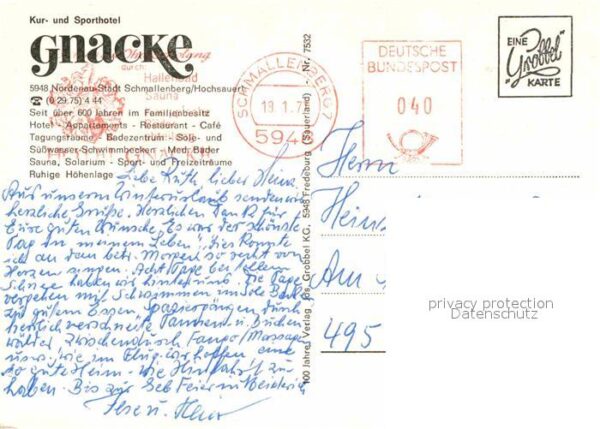 Kur- und Sporthotel
Gnacke
5948 Nordenau-Stadt Schmallenberg/Hochsauerl.
☎ (0 29 75) 4 44
Seit über 600 Jahren im Familienbesitz
Hotel - Appartements - Restaurant - Café
Tagungsräume - Badezentrum - Sole- und
Süßwasser-Schwimmbecken - Med. Bäder
Sauna, Solarium - Sport- und Freizeiträume
Ruhige Höhenlage
durch:
Hallenbad
Sauna
SCHMALLENBERG 7
19.1.7
5948
DEUTSCHE
BUNDESPOST
040
EINE
"Grobbel"
KARTE
100 Jahre Verlag Jos. Grobbel KG, 5948 Fredeburg (Sauerland) - Nr. 7532
Liebe Ruth lieber Heinz
Aus unserem Winterurlaub senden wir
herzliche Grüße. Herzlichen Dank für
Eure guten Wünsche. Es war der schönste
Tag in meinem Leben", dies konnte
ich an dem betr. Morgen so recht von
Herzen singen. Acht Tage bei tollem
haben wir hinter uns. Die Tage
vergehen mit Schwimmen im Sole Bad
zu gutem Essen, Spaziergängen durch
herrlich verschneite Tannen u. Buchen
wälder, zwischendurch Fango/Massage
usw. wie im Flug. Wir hoffen eine
so gute Heim- wie Hinfahrt zu
haben. Bis zur Geb Feier in Meiderich
Ilse u. Heinz
Herrn
Heinz
Am
495
privacy protection
Datenschutz